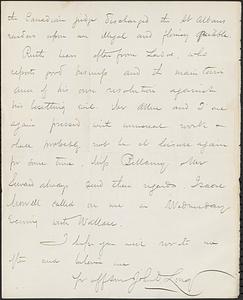 the Canadian judge discharged the St Albans
raiders upon an illegal and flimsy quibble
Ruth hears often from Leidse, who
reports good
of his own resolution against
his Mr Allen and I are
again pressed with unusual work &
shall probably not be at leisure again
for some time. Miss Bellamy Mr
Seward always send their regards Isaac
Morrell called on me on Wednesday
Evening with Wallace.
I hope you will write me
often and believe me
yr aff son John